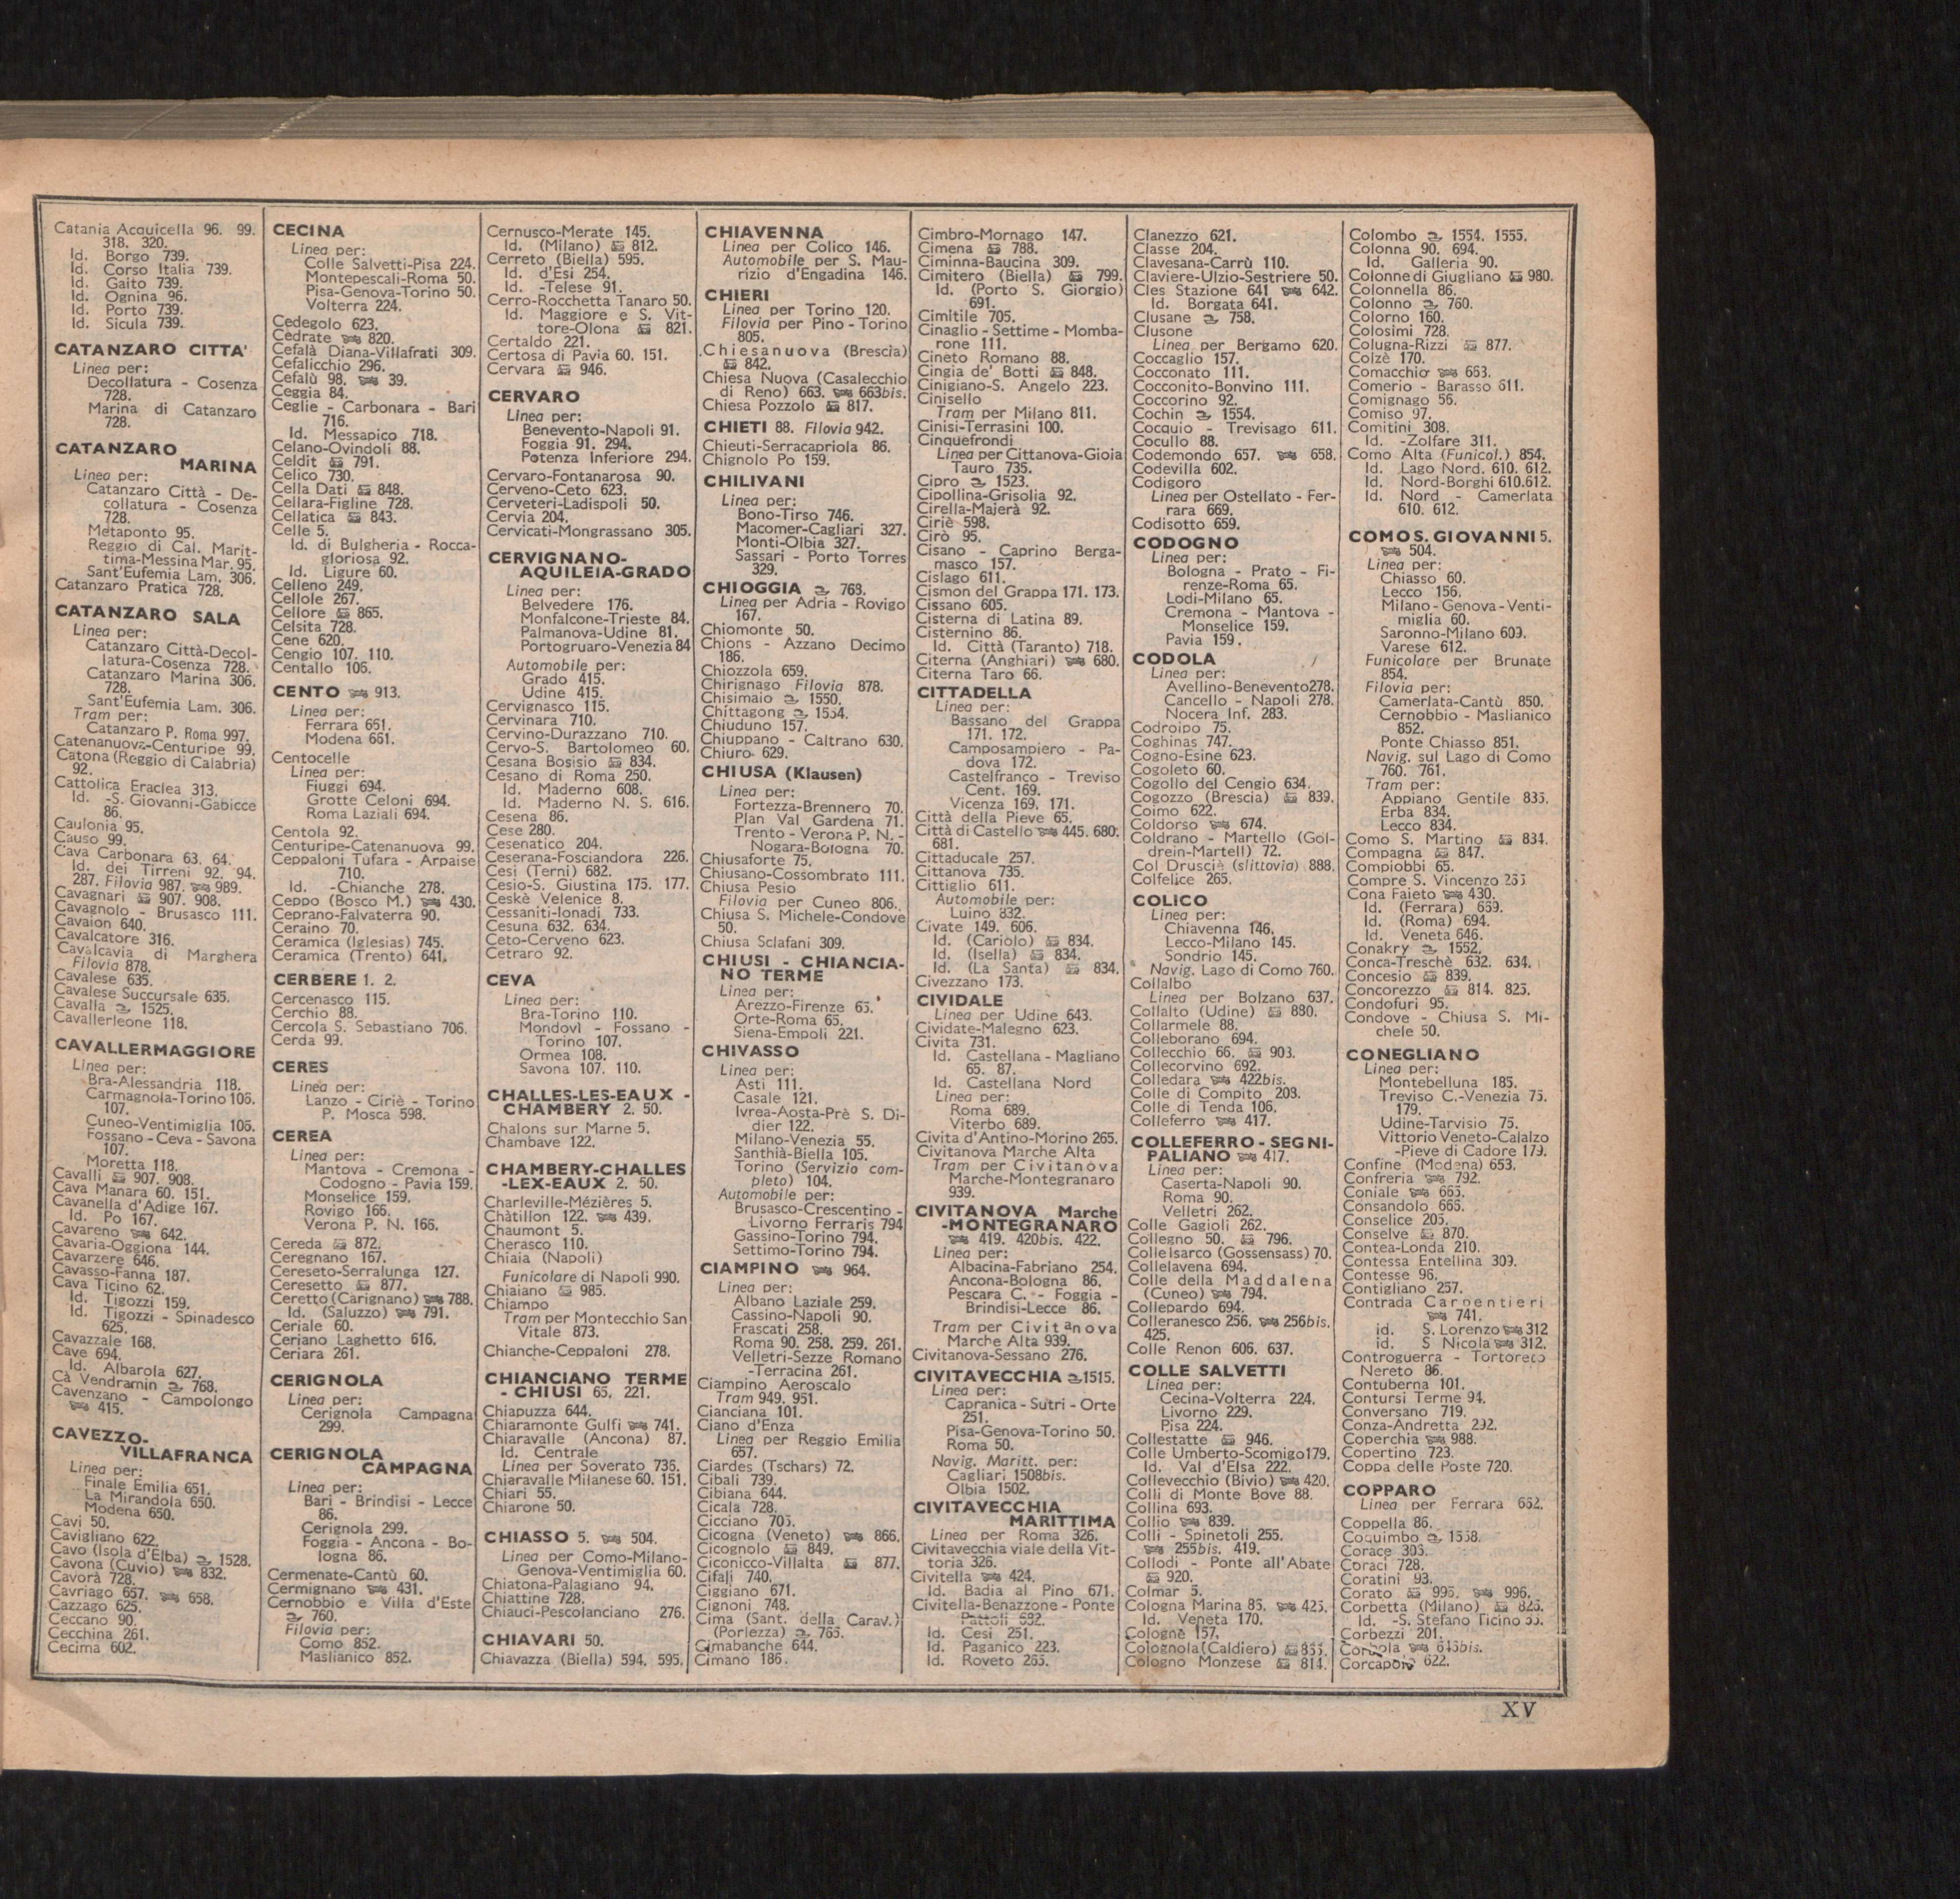 Catania Acquicella 96. 99.
318. 320.
Id. Borgo 739.
Id. Corso Italia 739.
Id. Gaito 739.
Id. Ognina 96.
Id. Porto 739.
Id. Sicula 739.
CATANZARO CITTA'
Linea per:
Decollatura - Cosenza
728.
Marina di Catanzaro
728.
CATANZARO
MARINA
Linea per:
Catanzaro Città - De-
collatura - Cosenza
728.
Metaponto 95.
Reggio di Cal. Marit-
tima-Messina Mar. 95.
Sant'Eufemia Lam. 306.
Catanzaro Pratica 728.
CATANZARO SALA
Linea per:
Catanzaro Città-Decol-
latura-Cosenza 728.
Catanzaro Marina 306.
728.
Sant'Eufemia Lam. 306.
Tram per:
Catanzaro P. Roma 997.
Catenanuova-Centuripe 99.
Catona (Reggio di Calabria)
92.
Cattolica Eraclea 313.
Id. -S. Giovanni-Gabicce
86.
Caulonia 95.
Causo 99.
Cava Carbonara 63. 64.
Id. dei Tirreni 92. 94.
287. Filovia 987. 989.
Cavagnari 907. 908.
Cavagnolo - Brusasco 111.
Cavaion 640.
Cavalcatore 316.
Cavalcavia di Marghera
Filovia 878.
Cavalese 635.
Cavalese Succursale 635.
Cavalla 1525.
Cavallerleone 118.
CAVALLERMAGGIORE
Linea per:
Bra-Alessandria 118.
Carmagnola-Torino 106.
107.
Cuneo-Ventimiglia 106.
Fossano - Ceva - Savona
107.
Moretta 118.
Cavalli 907. 908.
Cava Manara 60. 151.
Cavanella d'Adige 167.
Id. Po 167.
Cavareno 642.
Cavaria-Oggiona 144.
Cavarzere 646.
Cavasso-Fanna 187.
Cava Ticino 62.
Id. Tigozzi 159.
Id. Tigozzi - Spinadesco
625.
Cavazzale 168.
Cave 694.
Id. Albarola 627.
Cà Vendramin 768.
Cavenzano - Campolongo
415.
CAVEZZO-
VILLAFRANCA
Linea per:
Finale Emilia 651.
La Mirandola 650.
Modena 650.
Cavi 50.
Cavigliano 622.
Cavo (Isola d'Elba) 1528.
Cavona (Cuvio) 832.
Cavorà 728.
Cavriago 657. 658.
Cazzago 625.
Ceccano 90.
Cecchina 261.
Cecima 602.
CECINA
Linea per:
Colle Salvetti-Pisa 224.
Montepescali-Roma 50.
Pisa-Genova-Torino 50.
Volterra 224.
Cedegolo 623.
Cedrate 820.
Cefalà Diana-Villafrati 309.
Cefalicchio 296.
Cefalù 98. 39.
Ceggia 84.
Ceglie - Carbonara - Bari
716.
Id. Messapico 718.
Celano-Ovindoli 88.
Celdit 791.
Celico 730.
Cella Dati 848.
Cellara-Figline 728.
Cellatica 843.
Celle 5.
Id. di Bulgheria - Rocca-
gloriosa 92.
Id. Ligure 60.
Celleno 249.
Cellole 267.
Cellore 865.
Celsita 728.
Cene 620.
Cengio 107. 110.
Centallo 106.
CENTO 913.
Linea per:
Ferrara 661.
Modena 661.
Centocelle
Linea per:
Fiuggi 694.
Grotte Celoni 694.
Roma Laziali 694.
Centola 92.
Centuripe-Catenanuova 99.
Ceppaloni Tufara - Arpaise
710.
Id. -Chianche 278.
Ceppo (Bosco M.) 430.
Ceprano-Falvaterra 90.
Ceraino 70.
Ceramica (Iglesias) 745.
Ceramica (Trento) 641.
CERBERE 1. 2.
Cercenasco 115.
Cerchio 88.
Cercola S. Sebastiano 706.
Cerda 99.
CERES
Linea per:
Lanzo - Ciriè - Torino
P. Mosca 598.
CEREA
Linea per:
Mantova - Cremona -
Codogno - Pavia 159.
Monselice 159.
Rovigo 166.
Verona P. N. 166.
Cereda 872.
Ceregnano 167.
Cereseto-Serralunga 127.
Ceresetto 877.
Ceretto (Carignano) 788.
Id. (Saluzzo) 791.
Ceriale 60.
Ceriano Laghetto 616.
Ceriara 261.
CERIGNOLA
Linea per:
Cerignola Campagna
299.
CERIGNOLA
CAMPAGNA
Linea per:
Bari - Brindisi - Lecce
86.
Cerignola 299.
Foggia - Ancona - Bo-
logna 86.
Cermenate-Cantù 60.
Cermignano 431.
Cernobbio e Villa d'Este
760.
Filovia per:
Como 852.
Maslianico 852.
Cernusco-Merate 145.
Id. (Milano) 812.
Cerreto (Biella) 595.
Id. d'Esi 254.
Id. -Telese 91.
Cerro-Rocchetta Tanaro 50.
Id. Maggiore e S. Vit-
tore-Olona 821.
Certaldo 221.
Certosa di Pavia 60. 151.
Cervara 946.
CERVARO
Linea per:
Benevento-Napoli 91.
Foggia 91. 294.
Potenza Inferiore 294.
Cervaro-Fontanarosa 90.
Cerveno-Ceto 623.
Cerveteri-Ladispoli 50.
Cervia 204.
Cervicati-Mongrassano 305.
CERVIGNANO-
AQUILEIA-GRADO
Linea per:
Belvedere 176.
Monfalcone-Trieste 84.
Palmanova-Udine 81.
Portogruaro-Venezia 84
Automobile per:
Grado 415.
Udine 415.
Cervignasco 115.
Cervinara 710.
Cervino-Durazzano 710.
Cervo-S. Bartolomeo 60.
Cesana Bosisio 834.
Cesano di Roma 250.
Id. Maderno 608.
Id. Maderno N. S. 616.
Cesena 86.
Cese 280.
Cesenatico 204.
Ceserana-Fosciandora 226.
Cesi (Terni) 682.
Cesio-S. Giustina 175. 177.
Ceskè Velenice 8.
Cessaniti-Ionadi 733.
Cesuna 632. 634.
Ceto-Cerveno 623.
Cetraro 92.
CEVA
Linea per:
Bra-Torino 110.
Mondovì - Fossano -
Torino 107.
Ormea 108.
Savona 107. 110.
CHALLES-LES-EAUX -
CHAMBERY 2. 50.
Chalons sur Marne 5.
Chambave 122.
CHAMBERY-CHALLES
-LEX-EAUX 2. 50.
Charleville-Mézières 5.
Châtillon 122. 439.
Chaumont 5.
Cherasco 110.
Chiaia (Napoli)
Funicolare di Napoli 990.
Chiaiano 985.
Chiampo
Tram per Montecchio San
Vitale 873.
Chianche-Ceppaloni 278.
CHIANCIANO TERME
- CHIUSI 65. 221.
Chiapuzza 644.
Chiaramonte Gulfi 741.
Chiaravalle (Ancona) 87.
Id. Centrale
Linea per Soverato 736.
Chiaravalle Milanese 60. 151.
Chiari 55.
Chiarone 50.
CHIASSO 5. 504.
Linea per Como-Milano-
Genova-Ventimiglia 60.
Chiatona-Palagiano 94.
Chiattine 728.
Chiauci-Pescolanciano 276.
CHIAVARI 50.
Chiavazza (Biella) 594. 595.
CHIAVENNA
Linea per Colico 146.
Automobile per S. Mau-
rizio d'Engadina 146.
CHIERI
Linea per Torino 120.
Filovia per Pino - Torino
805.
Chiesanuova (Brescia)
842.
Chiesa Nuova (Casalecchio
di Reno) 663. 663bis.
Chiesa Pozzolo 817.
CHIETI 88. Filovia 942.
Chieuti-Serracapriola 86.
Chignolo Po 159.
CHILIVANI
Linea per:
Bono-Tirso 746.
Macomer-Cagliari 327.
Monti-Olbia 327.
Sassari - Porto Torres
329.
CHIOGGIA 768.
Linea per Adria - Rovigo
167.
Chiomonte 50.
Chions - Azzano Decimo
186.
Chiozzola 659.
Chirignago Filovia 878.
Chisimaio 1550.
Chittagong 1554.
Chiuduno 157.
Chiuppano - Caltrano 630.
Chiuro 629.
CHIUSA (Klausen)
Linea per:
Fortezza-Brennero 70.
Plan Val Gardena 71.
Trento - Verona P. N. -
Nogara-Bologna 70.
Chiusaforte 75.
Chiusano-Cossombrato 111.
Chiusa Pesio
Filovia per Cuneo 806.
Chiusa S. Michele-Condove
50.
Chiusa Sclafani 309.
CHIUSI - CHIANCIA-
NO TERME
Linea per:
Arezzo-Firenze 65.
Orte-Roma 65.
Siena-Empoli 221.
CHIVASSO
Linea per:
Asti 111.
Casale 121.
Ivrea-Aosta-Prè S. Di-
dier 122.
Milano-Venezia 55.
Santhià-Biella 105.
Torino (Servizio com-
pleto) 104.
Automobile per:
Brusasco-Crescentino -
Livorno Ferraris 794
Gassino-Torino 794.
Settimo-Torino 794.
CIAMPINO 964.
Linea per:
Albano Laziale 259.
Cassino-Napoli 90.
Frascati 258.
Roma 90. 258. 259. 261.
Velletri-Sezze Romano
-Terracina 261.
Ciampino Aeroscalo
Tram 949. 951.
Cianciana 101.
Ciano d'Enza
Linea per Reggio Emilia
657.
Ciardes (Tschars) 72.
Cibali 739.
Cibiana 644.
Cicala 728.
Cicciano 705.
Cicogna (Veneto) 866.
Cicognolo 849.
Ciconicco-Villalta 877.
Cifali 740.
Ciggiano 671.
Cignoni 748.
Cima (Sant. della Carav.)
(Porlezza) 765.
Cimabanche 644.
Cimano 186.
Cimbro-Mornago 147.
Cimena 788.
Ciminna-Baucina 309.
Cimitero (Biella) 799.
Id. (Porto S. Giorgio)
691.
Cimitile 705.
Cinaglio - Settime - Momba-
rone 111.
Cineto Romano 88.
Cingia de' Botti 848.
Cinigiano-S. Angelo 223.
Cinisello
Tram per Milano 811.
Cinisi-Terrasini 100.
Cinquefrondi
Linea per Cittanova-Gioia
Tauro 735.
Cipro 1523.
Cipollina-Grisolia 92.
Cirella-Majerà 92.
Ciriè 598.
Cirò 95.
Cisano - Caprino Berga-
masco 157.
Cislago 611.
Cismon del Grappa 171. 173.
Cissano 605.
Cisterna di Latina 89.
Cisternino 86.
Id. Città (Taranto) 718.
Citerna (Anghiari) 680.
Citerna Taro 66.
CITTADELLA
Linea per:
Bassano del Grappa
171. 172.
Camposampiero - Pa-
dova 172.
Castelfranco - Treviso
Cent. 169.
Vicenza 169. 171.
Città della Pieve 65.
Città di Castello 445. 680.
681.
Cittaducale 257.
Cittanova 735.
Cittiglio 611.
Automobile per:
Luino 832.
Civate 149. 606.
Id. (Cariolo) 834.
Id. (Isella) 834.
Id. (La Santa) 834.
Civezzano 173.
CIVIDALE
Linea per Udine 643.
Cividate-Malegno 623.
Civita 731.
Id. Castellana - Magliano
65. 87.
Id. Castellana Nord
Linea per:
Roma 689.
Viterbo 689.
Civita d'Antino-Morino 265.
Civitanova Marche Alta
Tram per Civitanova
Marche-Montegranaro
939.
CIVITANOVA Marche
-MONTEGRANARO
419. 420bis. 422.
Linea per:
Albacina-Fabriano 254.
Ancona-Bologna 86.
Pescara C. - Foggia -
Brindisi-Lecce 86.
Tram per Civitanova
Marche Alta 939.
Civitanova-Sessano 276.
CIVITAVECCHIA 1515.
Linea per:
Capranica - Sutri - Orte
251.
Pisa-Genova-Torino 50.
Roma 50.
Navig. Maritt. per:
Cagliari 1508bis.
Olbia 1502.
CIVITAVECCHIA
MARITTIMA
Linea per Roma 326.
Civitavecchia viale della Vit-
toria 326.
Civitella 424.
Id. Badia al Pino 671.
Civitella-Benazzone - Ponte
Pattoli 682.
Id. Cesi 251.
Id. Paganico 223.
Id. Roveto 265.
Clanezzo 621.
Classe 204.
Clavesana-Carrù 110.
Claviere-Ulzio-Sestriere 50.
Cles Stazione 641 642.
Id. Borgata 641.
Clusane 758.
Clusone
Linea per Bergamo 620.
Coccaglio 157.
Cocconato 111.
Cocconito-Bonvino 111.
Coccorino 92.
Cochin 1554.
Cocquio - Trevisago 611.
Cocullo 88.
Codemondo 657. 658.
Codevilla 602.
Codigoro
Linea per Ostellato - Fer-
rara 669.
Codisotto 659.
CODOGNO
Linea per:
Bologna - Prato - Fi-
renze-Roma 65.
Lodi-Milano 65.
Cremona - Mantova -
Monselice 159.
Pavia 159.
CODOLA
Linea per:
Avellino-Benevento278.
Cancello - Napoli 278.
Nocera Inf. 283.
Codroipo 75.
Coghinas 747.
Cogno-Esine 623.
Cogoleto 60.
Cogollo del Cengio 634.
Cogozzo (Brescia) 839.
Coimo 622.
Coldorso 674.
Coldrano - Martello (Gol-
drein-Martell) 72.
Col Druscià (slittovia) 888.
Colfelice 265.
COLICO
Linea per:
Chiavenna 146.
Lecco-Milano 145.
Sondrio 145.
Navig. Lago di Como 760.
Collalbo
Linea per Bolzano 637.
Collalto (Udine) 880.
Collarmele 88.
Colleborano 694.
Collecchio 66. 903.
Collecorvino 692.
Colledara 422bis.
Colle di Compito 208.
Colle di Tenda 106.
Colleferro 417.
COLLEFERRO - SEGNI-
PALIANO 417.
Linea per:
Caserta-Napoli 90.
Roma 90.
Velletri 262.
Colle Gagioli 262.
Collegno 50. 796.
Colle Isarco (Gossensass) 70.
Collelavena 694.
Colle della Maddalena
(Cuneo) 794.
Collepardo 694.
Colleranesco 256. 256bis.
425.
Colle Renon 606. 637.
COLLE SALVETTI
Linea per:
Cecina-Volterra 224.
Livorno 229.
Pisa 224.
Collestatte 946.
Colle Umberto-Scomigo179.
Id. Val d'Elsa 222.
Collevecchio (Bivio) 420.
Colli di Monte Bove 88.
Collina 693.
Collio 839.
Colli - Spinetoli 255.
255bis. 419.
Collodi - Ponte all'Abate
920.
Colmar 5.
Cologna Marina 86. 425.
Id. Veneta 170.
Cologne 157.
Colognola(Caldiero) 865.
Cologno Monzese 814.
Colombo 1554. 1555.
Colonna 90. 694.
Id. Galleria 90.
Colonne di Giugliano 980.
Colonnella 86.
Colonno 760.
Colorno 160.
Colosimi 728.
Colugna-Rizzi 877.
Colzè 170.
Comacchio 663.
Comerio - Barasso 611.
Comignago 56.
Comiso 97.
Comitini 308.
Id. -Zolfare 311.
Como Alta (Funicol.) 854.
Id. Lago Nord. 610. 612.
Id. Nord-Borghi 610.612.
Id. Nord - Camerlata
610. 612.
COMO S. GIOVANNI 5.
504.
Linea per:
Chiasso 60.
Lecco 156.
Milano - Genova - Venti-
miglia 60.
Saronno-Milano 609.
Varese 612.
Funicolare per Brunate
854.
Filovia per:
Camerlata-Cantù 850.
Cernobbio - Maslianico
852.
Ponte Chiasso 851.
Navig. sul Lago di Como
760. 761.
Tram per:
Appiano Gentile 835.
Erba 834.
Lecco 834.
Como S. Martino 834.
Compagna 847.
Compiobbi 65.
Compre S. Vincenzo
Cona Faieto 430.
Id. (Ferrara) 669.
Id. (Roma) 694.
Id. Veneta 646.
Conakry 1552.
Conca-Treschè 632. 634.
Concesio 839.
Concorezzo 814. 825.
Condofuri 95.
Condove - Chiusa S. Mi-
chele 50.
CONEGLIANO
Linea per:
Montebelluna 185.
Treviso C.-Venezia 75.
179.
Udine-Tarvisio 75.
Vittorio Veneto-Calalzo
-Pieve di Cadore 179.
Confine (Modena) 653.
Confreria 792.
Coniale 665.
Consandolo 665.
Conselice 205.
Conselve 870.
Contea-Londa 210.
Contessa Entellina 309.
Contesse 96.
Contigliano 257.
Contrada Carpentieri
741.
id. S. Lorenzo 312
id. S Nicola 312.
Controguerra - Tortoreto
Nereto 86.
Contuberna 101.
Contursi Terme 94.
Conversano 719.
Conza-Andretta 292.
Coperchia 988.
Copertino 723.
Coppa delle Poste 720.
COPPARO
Linea per Ferrara 662.
Coppella 86.
Coquimbo 1558.
Corace 305.
Coraci 728.
Coratini 93.
Corato 995. 996.
Corbetta (Milano) 826.
Id. -S. Stefano Ticino 55.
Corbezzi 201.
Corbola 645bis.
Corcapolo 622.
XV